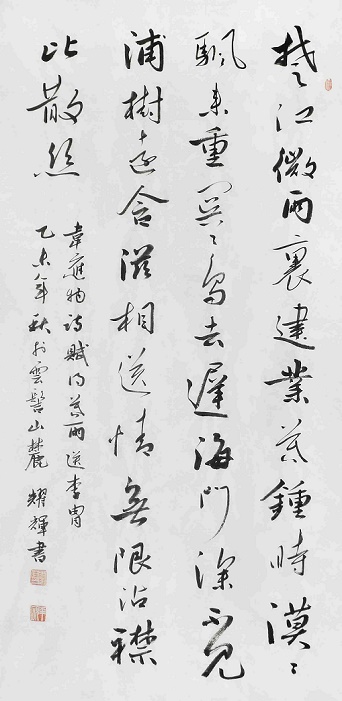 楚江微雨裏建業暮鍾時漠〻
颿来重冥〻鳥去遲海門深不見
浦樹遠含滋相送情無限沾襟
比散絲
韋應物詩賦得暮雨送李胄
乙未年秋於雲髻山麓 耀輝書